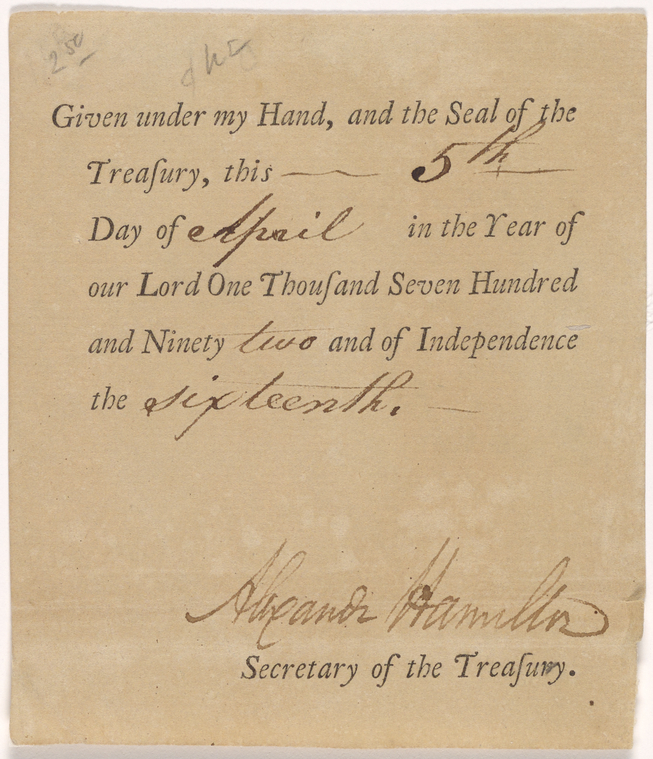 2 50
Given under my Hand, and the Seal of the
Treaſury, this 5th
Day of April in the Year of
our Lord One Thouſand Seven Hundred
and Ninety two and of Independence
the sixteenth.
Alexandr Hamilton
Secretary of the Treaſury.